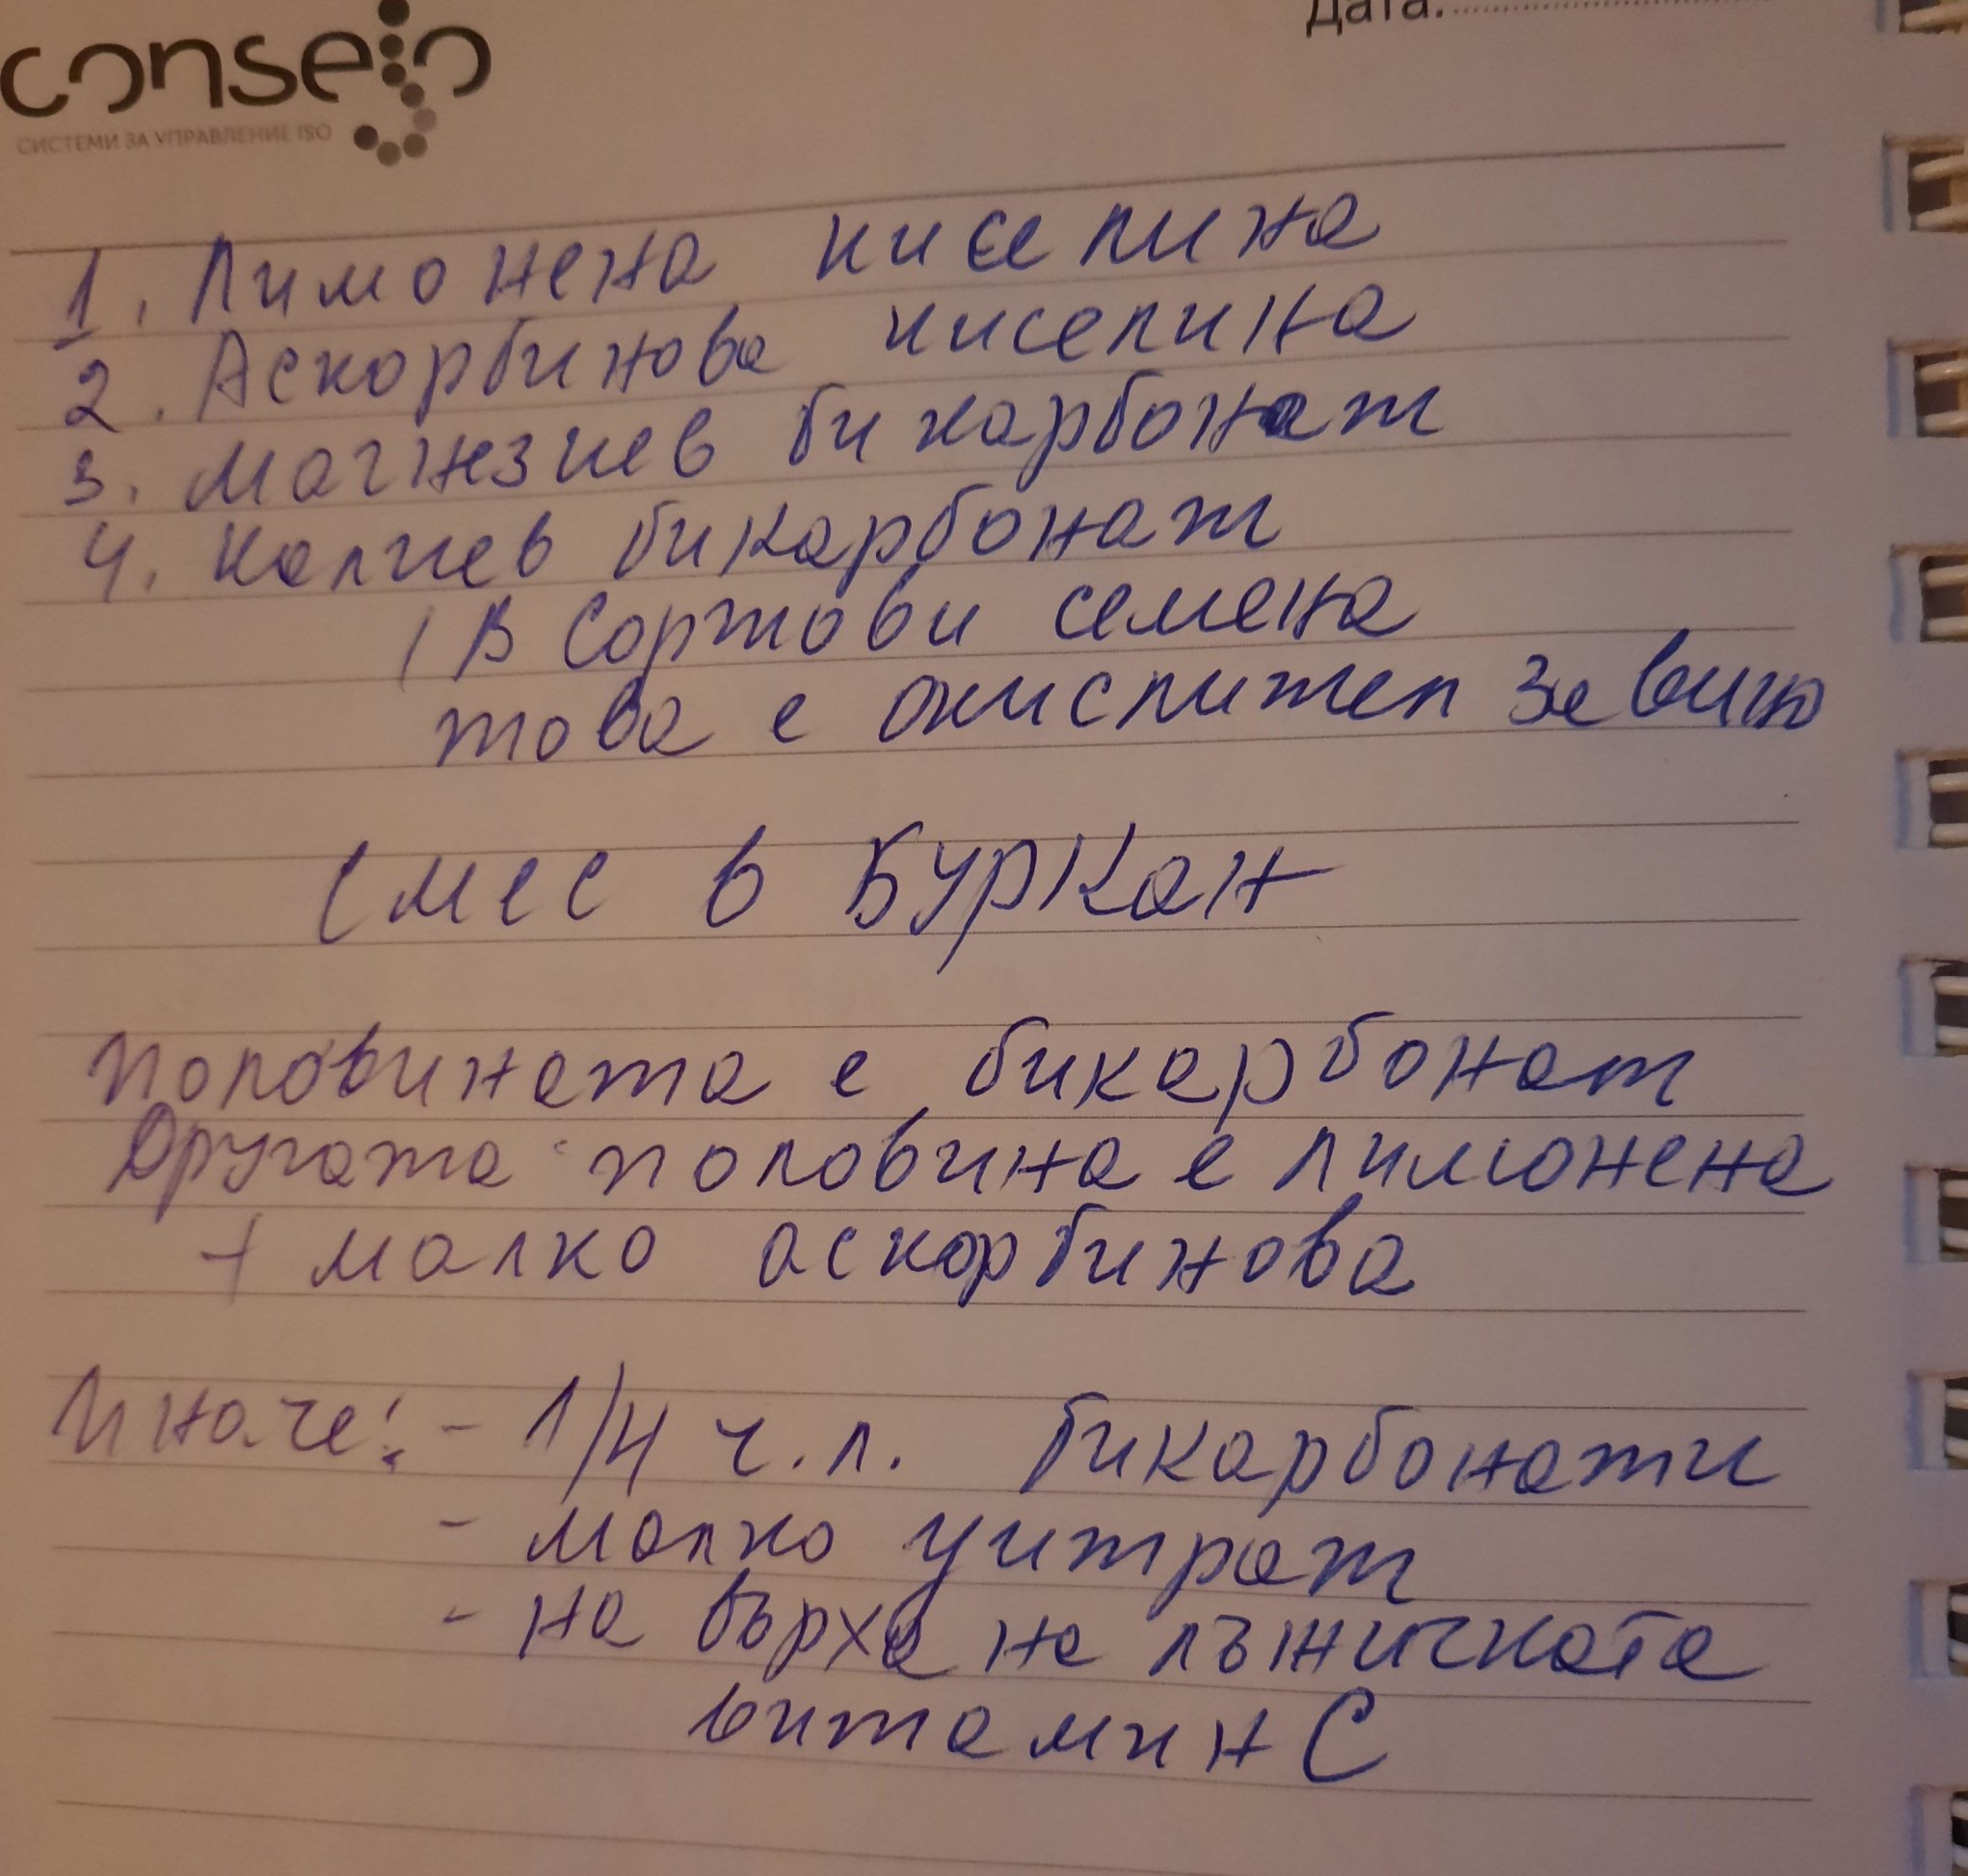 consejo
СИСТЕМИ ЗА УПРАВЛЕНИЕ ISO
Дата:
1. Лимонена киселина
2. Аскорбинова киселина
3. Магнезиев бикарбонат
4. Калиев бикарбонат
/ В Сортови семена
това е окислител за вино
Смес в Буркан
Половината е бикарбонат
Другата половина е лимонена
+ малко аскорбинова
Иначе: - 1/4 ч.л. бикарбонати
- малко цитрат
- на върха на лъжичката
витамин С